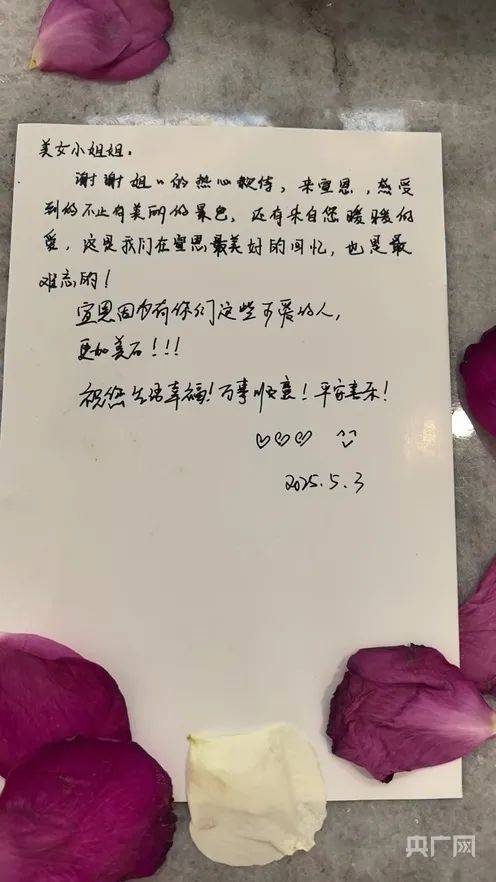 美女小姐姐：
谢谢姐〃的热心款待，来宣恩，感受
到的不止有美丽的景色，还有来自您暖暖的
爱，这是我们在宣恩最美好的回忆，也是最
难忘的！
宣恩因为有你们这些可爱的人，
更加美丽！！！
祝您生活幸福！万事顺意！平安喜乐！
♡♡♡ ^^
2025.5.3
央广网